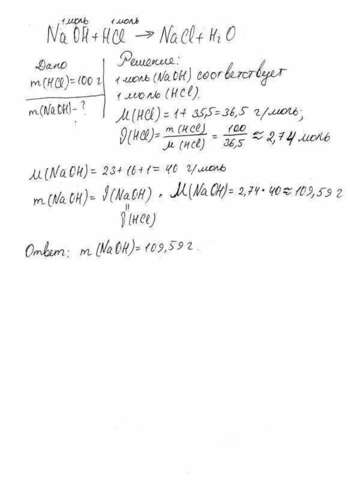 1 моль 1 моль
NaOH + HCl → NaCl + H₂O
Дано
m(HCl) = 100 г
m(NaOH) - ?
Решение:
1 моль (NaOH) соответствует
1 моль (HCl).
M(HCl) = 1 + 35,5 = 36,5 г/моль;
ϑ(HCl) = m(HCl)/M(HCl) = 100/36,5 ≈ 2,74 моль
M(NaOH) = 23 + 16 + 1 = 40 г/моль
m(NaOH) = ϑ(NaOH) · M(NaOH) = 2,74 · 40 ≈ 109,59 г
=
ϑ(HCl)
Ответ: m(NaOH) = 109,59 г.